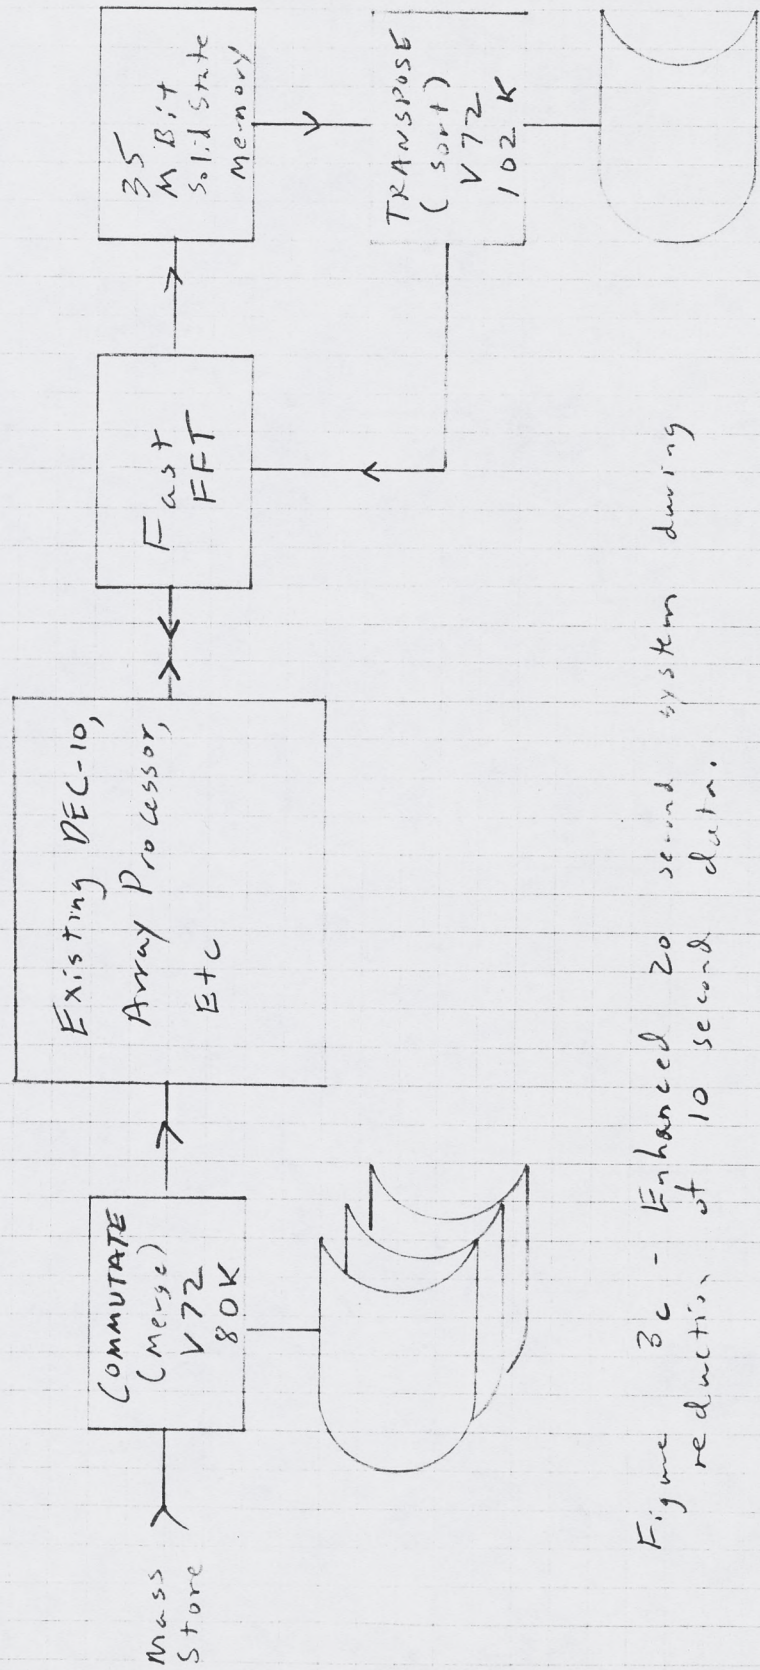 Mass
Store
COMMUTATE
(Merge)
V72
80K
Existing DEC-10,
Array Processor,
Etc
Fast
FFT
35
M Bit
Solid State
Memory
TRANSPOSE
(sort)
V72
102K
Figure 3c - Enhanced 20 second system during
reduction of 10 second data.